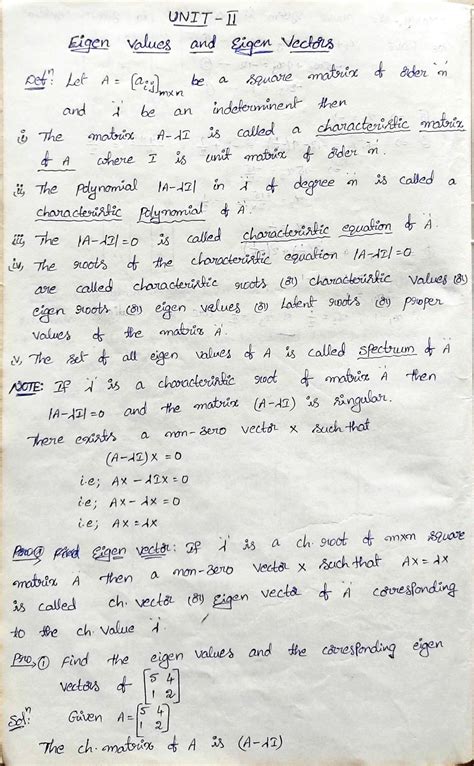 UNIT-II
Eigen values and Eigen Vectors
Defⁿ: Let A = [aij]m×n be a square matrix of order 'n'
and 'λ' be an indeterminent then
i, The matrix A-λI is called a characteristic matrix
of A where I is unit matrix of order 'n'.
ii, The polynomial |A-λI| in 'λ' of degree 'n' is called a
characteristic polynomial of 'A'.
iii, The |A-λI|=0 is called characteristic equation of 'A'.
iv, The roots of the characteristic equation |A-λI|=0
are called characteristic roots (or) characteristic values (or)
eigen roots (or) eigen values (or) Latent roots (or) proper
values of the matrix 'A'.
v, The set of all eigen values of A is called spectrum of 'A'
NOTE: If 'λ' is a characteristic root of matrix 'A' then
|A-λI|=0 and the matrix (A-λI) is singular.
There exists a non-zero vector X such that
(A-λI)X = 0
i.e; AX-λIX = 0
i.e; AX-λX = 0
i.e; AX = λX
Eigen vector: If 'λ' is a ch. root of m×n square
matrix A then a non-zero vector X such that AX = λX
is called ch. vector (or) Eigen vector of 'A' corresponding
to the ch. value 'λ'.
Pro,① Find the eigen values and the corresponding eigen
vectors of [5 4
1 2]
Solⁿ: Given A = [5 4
1 2]
The ch. matrix of A is (A-λI)